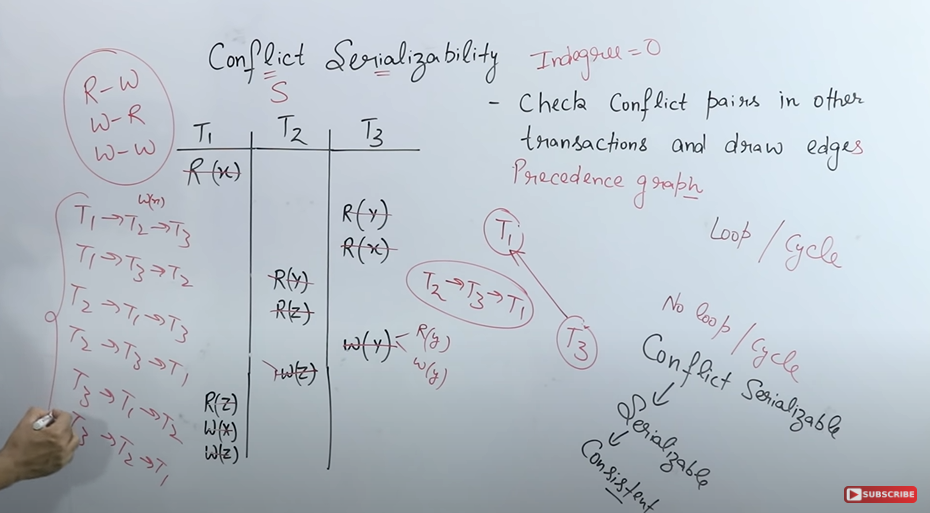 Conflict Serializability
S
Indegree = 0
R-W
W-R
W-W
- Check Conflict pairs in other
transactions and draw edges
Precedence graph
T1 T2 T3
R(x)
R(y)
R(x)
R(y)
R(z)
W(y)
R(y)
W(y)
W(z)
R(z)
W(x)
W(z)
W(x)
T1→T2→T3
T1→T3→T2
T2→T1→T3
T2→T3→T1
T3→T1→T2
T3→T2→T1
T2→T3→T1
T1
T3
Loop / Cycle
No loop / Cycle
Conflict Serializable
Serializable
Consistent
SUBSCRIBE